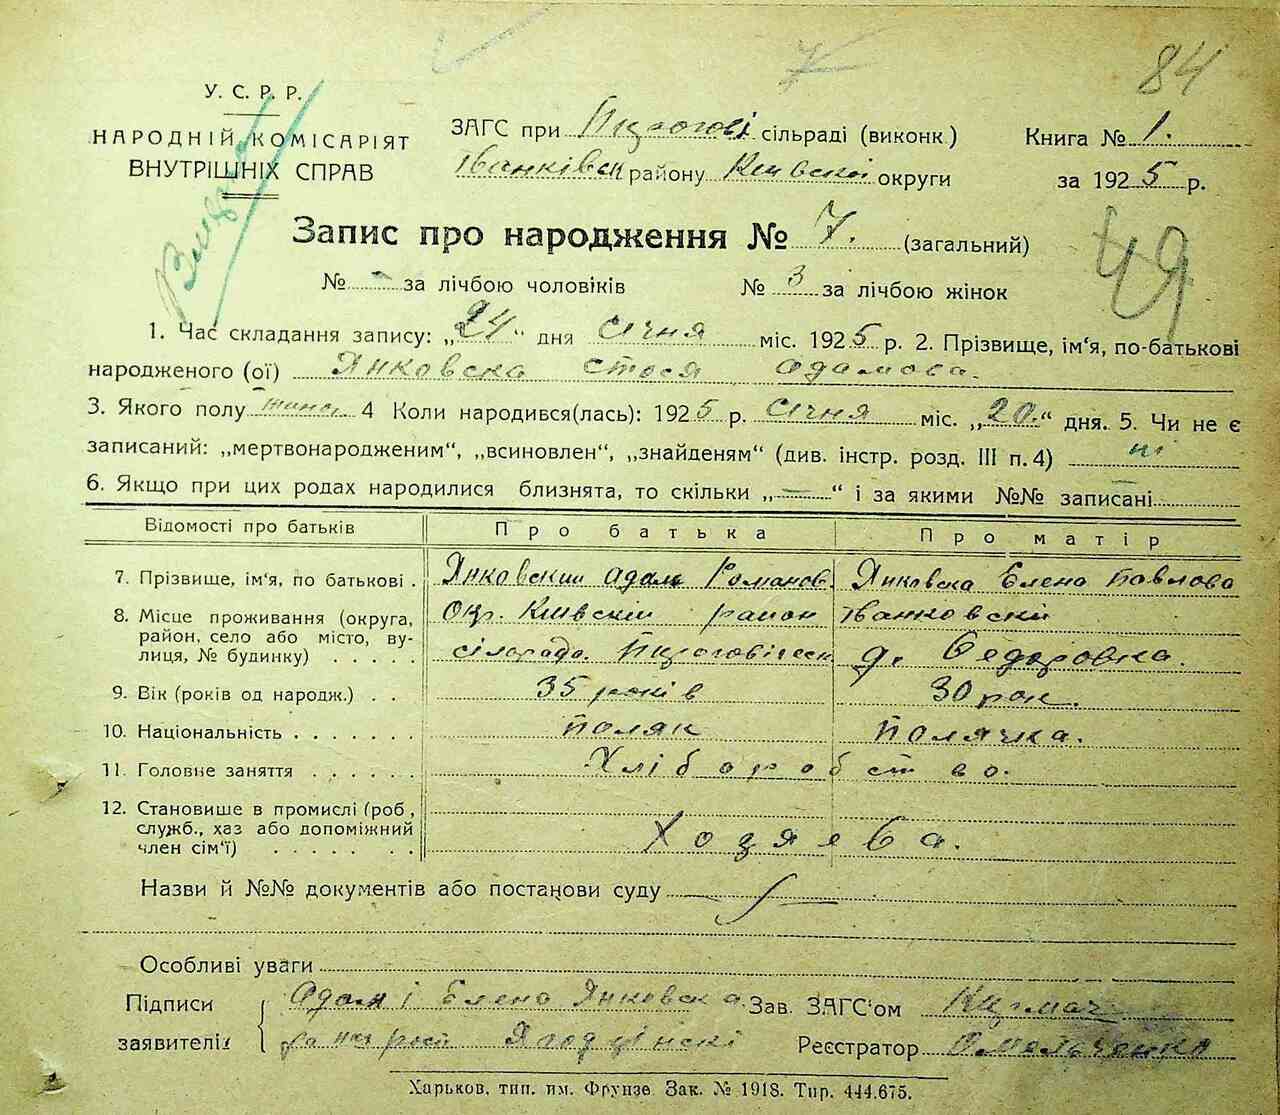 84
У. С. Р. Р.
НАРОДНІЙ КОМІСАРІЯТ
ВНУТРІШНІХ СПРАВ
ЗАГС при Пирогові сільраді (виконк.)
Іванківск району Київскої округи
Книга № 1.
за 1925 р.
Запис про народження № 7. (загальний)
49
№ - за лічбою чоловіків № 3 за лічбою жінок
1. Час складання запису: „24“ дня Січня міс. 1925 р. 2. Прізвище, ім‘я, по-батькові
народженого (ої) Янковска Стося Адамова.
3. Якого полу жіноч. 4 Коли народився(лась): 1925 р. Січня міс. „20.“ дня. 5. Чи не є
записаний: „мертвонародженим“, „всиновлен“, „знайденям“ (див. інстр. розд. III п. 4) ні
6. Якщо при цих родах народилися близнята, то скільки „—“ і за якими №№ записані
Відомості про батьків Про батька Про матір
7. Прізвище, ім‘я, по батькові . Янковский Адам Романов. Янковска Елена Павлова
8. Місце проживання (округа, Окр. Київскій район Іванковскій
район, село або місто, ву-
лиця, № будинку) . . . . . сілърада. д. Федоровка.
9. Вік (років од народж.) . . 35 років 30 рок.
10. Національність . . . . . . . поляк полячка.
11. Головне заняття . . . . . . Хліборобство.
12. Становище в промислі (роб,
служб., хаз або допоміжний
член сім‘ї) . . . . . . Хозяева.
Назви й №№ документів або постанови суду
Особливі уваги
Підписи Адам і Елена Янковска. Зав. ЗАГС‘ом
заявителів Ягодзінскі Реєстратор Омельченко
Харьков, тип. им. Фрунзе Зак. № 1918. Тир. 444.675.